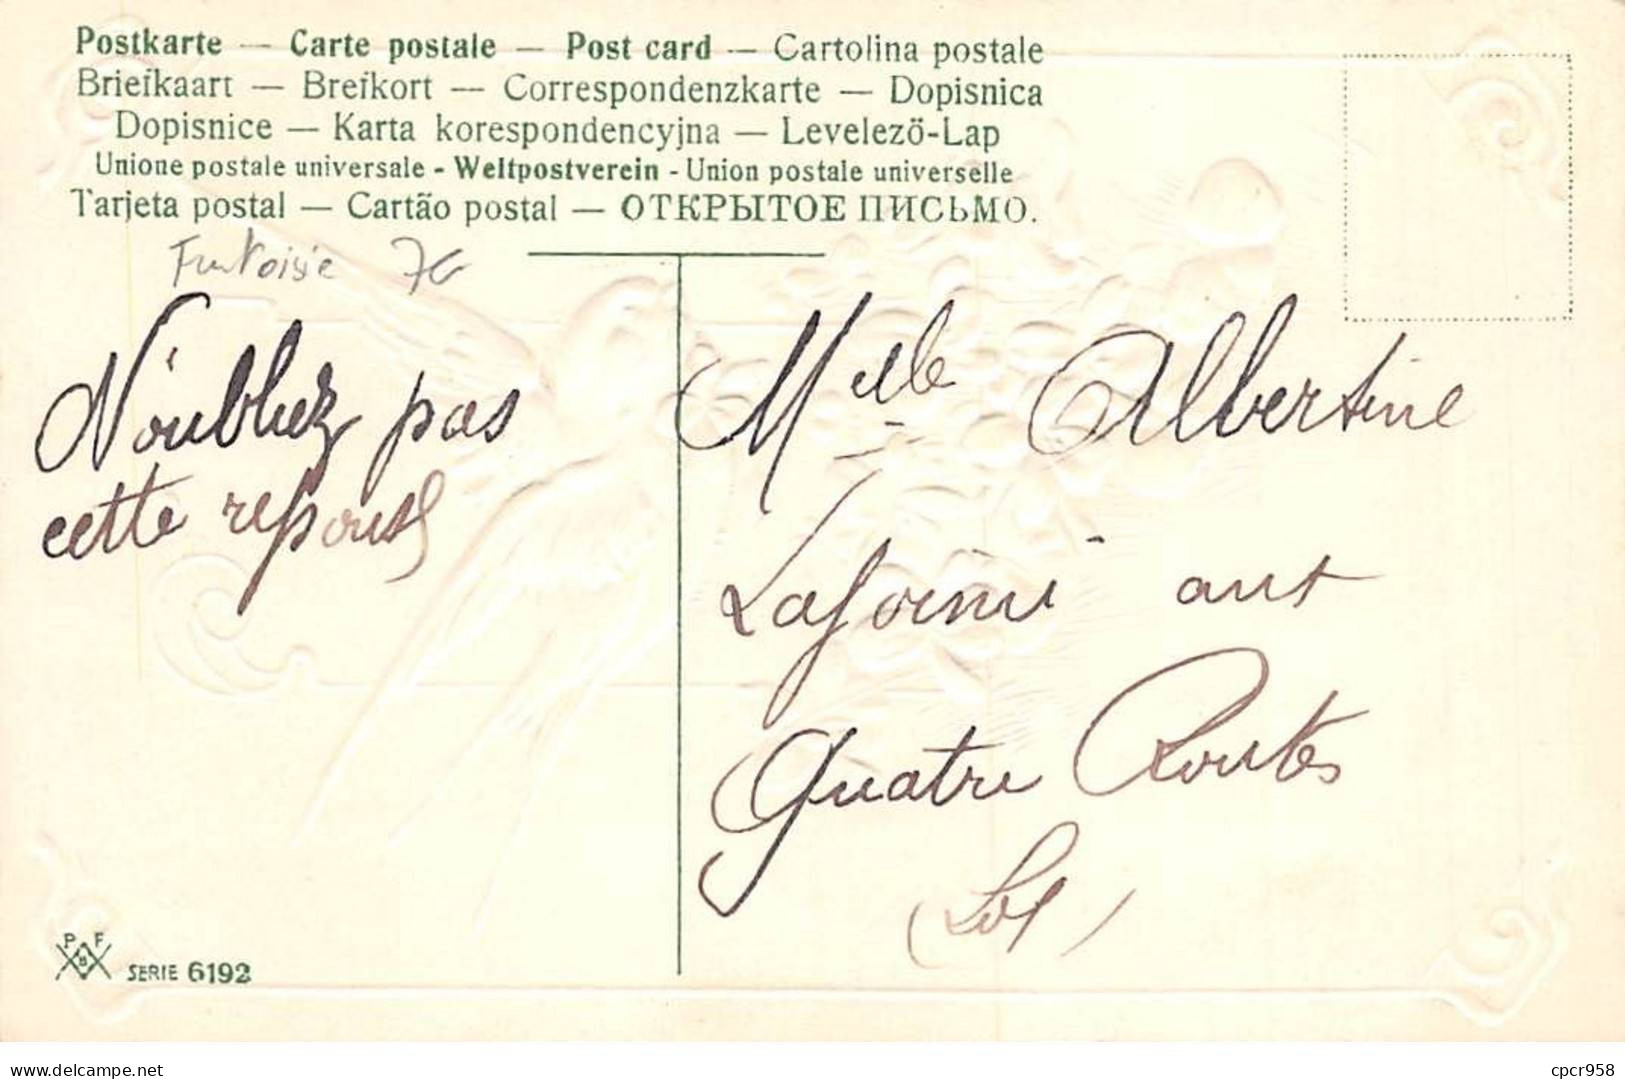 Postkarte — Carte postale — Post card — Cartolina postale
Briefkaart — Brefkort — Correspondenzkarte — Dopisnica
Dopisnice — Karta korespondencyjna — Levelező-Lap
Unione postale universale - Weltpostverein - Union postale universelle
Tarjeta postal — Cartão postal — ОТКРЫТОЕ ПИСЬМО.
Fantaisie
N'oubliez pas
cette reponse
Melle Albertine
aux
Quatre Routes
(Lot)
P F
B
SERIE 6192
www.delcampe.net
cpcr958